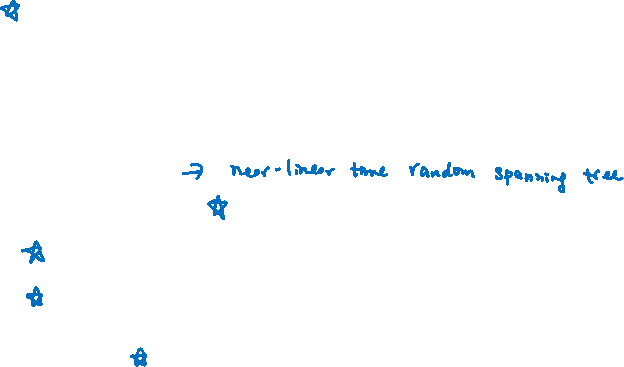 → near-linear time random spanning tree